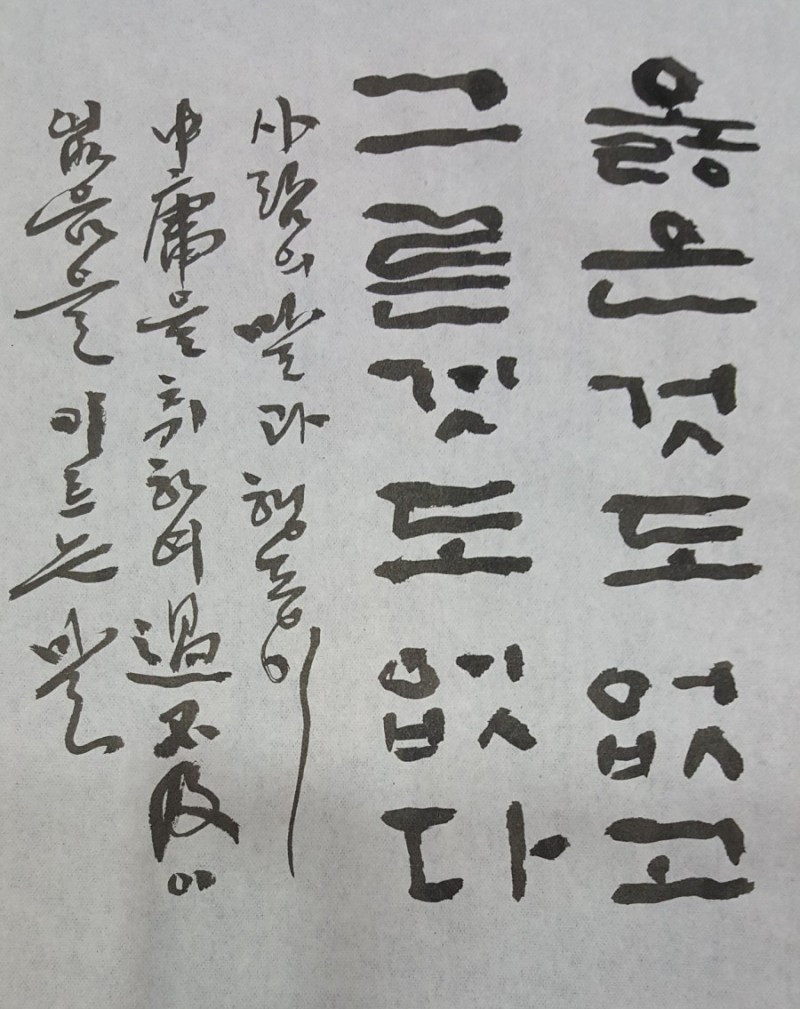 옳은것도 없고
그른것도 없다
사람의 말과 행동이
中庸을 취하여 過不及이
없음을 이르는 말